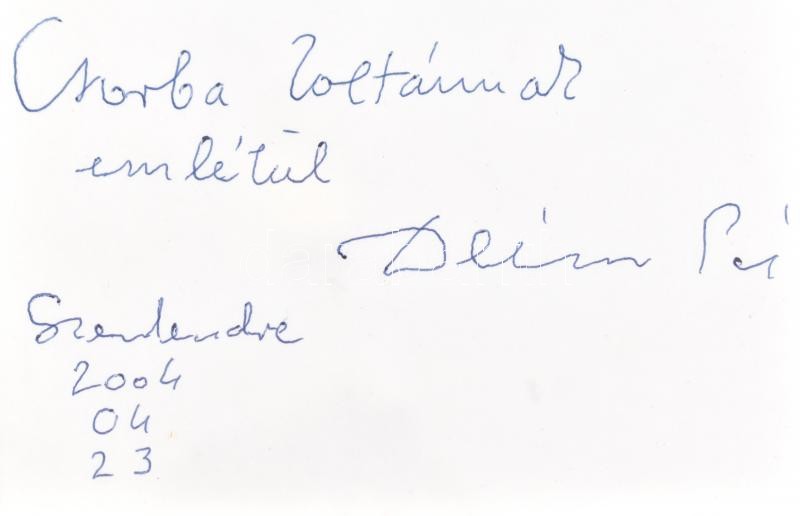 Csorba Zoltánnak
emlékül
Deim Pál
Szentendre
2004
04
23